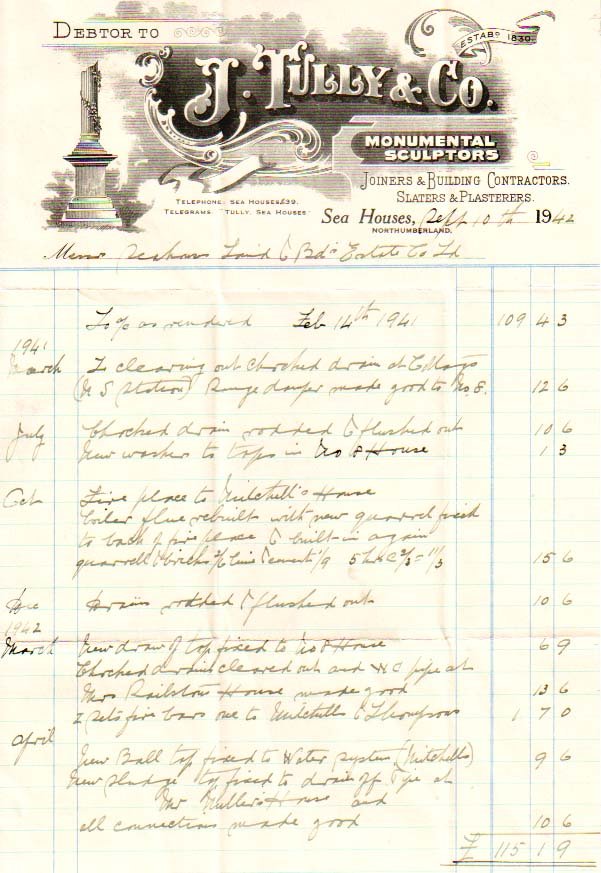 DEBTOR TO
ESTABD 1830.
J. TULLY & CO.
MONUMENTAL
SCULPTORS
JOINERS & BUILDING CONTRACTORS.
SLATERS & PLASTERERS.
TELEPHONE: SEA HOUSES 239.
TELEGRAMS "TULLY, SEA HOUSES"
Sea Houses, Sept 10th 1942
NORTHUMBERLAND.
Messrs Seahouses Land & Bd's Estate Co Ld
To a/c as rendered Feb 14th 1941 109 4 3
1941
March To clearing out chocked drain at
(N S Station) Range damper made good to No 8. 12 6
July Chocked drain rodded & flushed out 10 6
New washers to taps in No 8 House 1 3
Oct Fire place to Mitchell's House
boiler flue rebuilt with new quarrel fixed
to back of fire place & built in again
quarrell & bricks 2/6 lime & cement 1/9 5 hrs @ 2/3 = 11/3 15 6
Dec Drains rodded & flushed out 10 6
1942
March New draw of tap fixed to No 8 House 6 9
Chocked drains cleared out and WC pipe at
Mrs Railston House made good 13 6
2 sets fire bars one to Mitchells & Thompsons 1 7 0
April
New Ball tap fixed to Water system (Mitchells) 9 6
New sludge tap fixed to drain off pipe at
Mr House and
all connections made good 10 6
£ 115 19